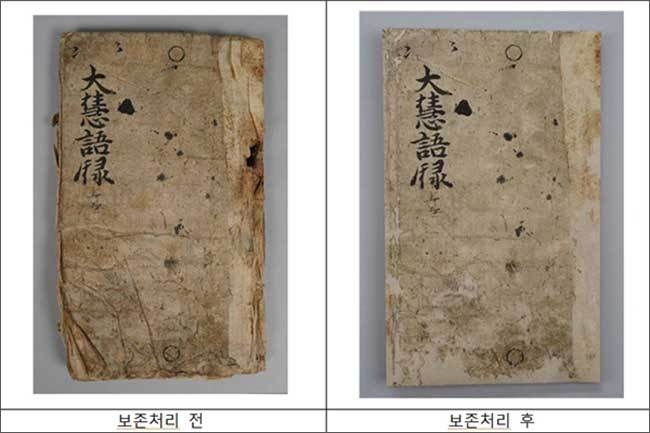 大慧語録
大慧語録
보존처리 전
보존처리 후